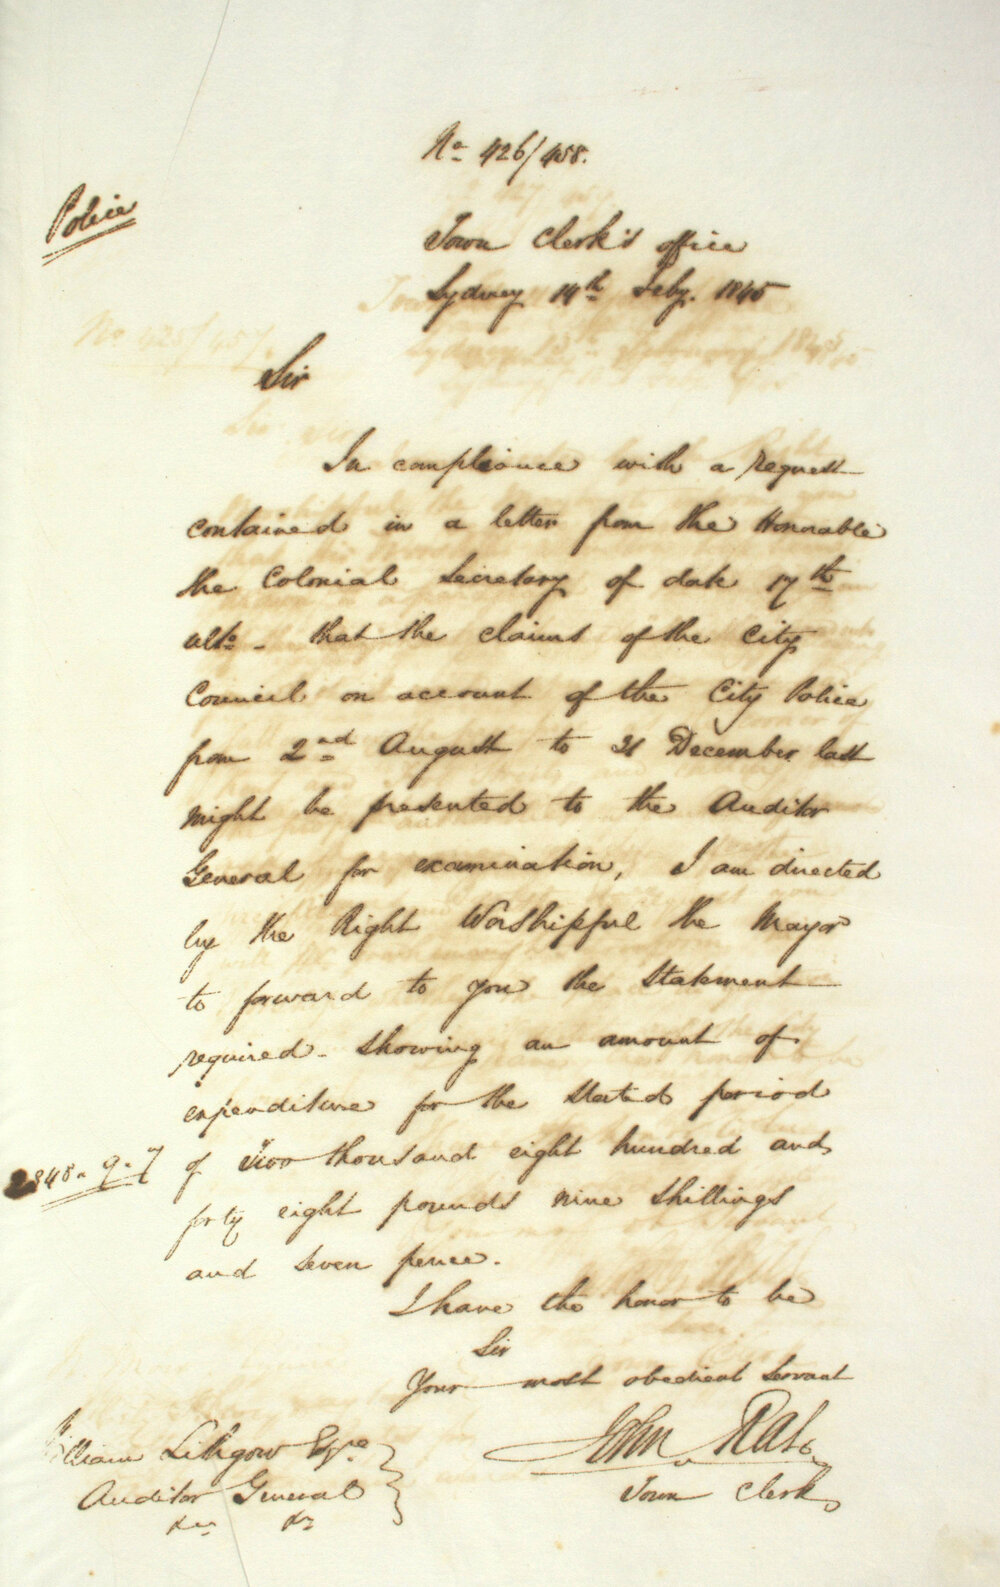 No 426/458.
Police
Town Clerk's office
Sydney 14th Feby. 1845
Sir
In compliance with a request
contained in a letter from the Honorable
the Colonial Secretary of date 17th
ulto - that the claims of the City
Council on account of the City Police
from 2nd August to 31 December last
might be presented to the Auditor
General for examination, I am directed
by the Right Worshipful the Mayor
to forward to you the Statement
required - showing an amount of
expenditure for the stated period
2848 " 9 " 7 of Two thousand eight hundred and
forty eight pounds nine shillings
and seven pence.
I have the honor to be
Sir
Your most obedient Servant
John Rae
Town Clerk
William Lithgow Esqre
Auditor General